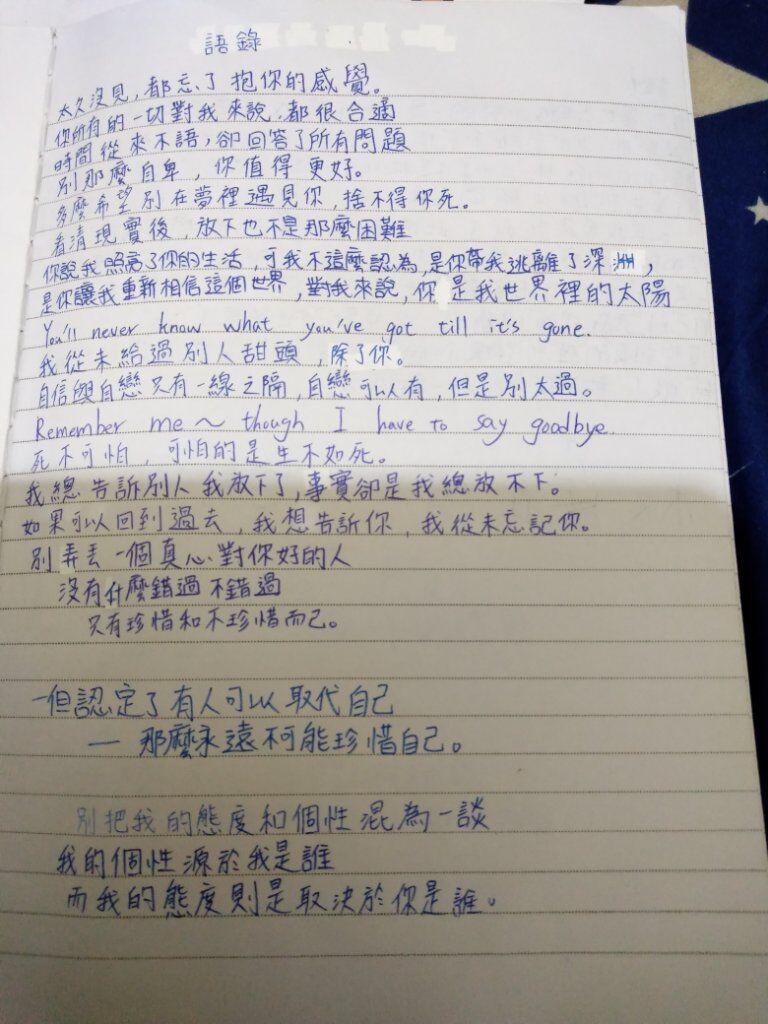 語錄
太久沒見，都忘了抱你的感覺。
你所有的一切對我來說，都很合適
時間從來不語，卻回答了所有問題
別那麼自卑，你值得更好。
多麼希望別在夢裡遇見你，捨不得你死。
看清現實後，放下也不是那麼困難
你說我照亮了你的生活，可我不這麼認為，是你帶我逃離了深淵，
是你讓我重新相信這個世界，對我來說，你是我世界裡的太陽
You'll never know what you've got till it's gone.
我從未給過別人甜頭，除了你。
自信與自戀只有一線之隔，自戀可以有，但是別太過。
Remember me ~ though I have to say goodbye
死不可怕，可怕的是生不如死。
我總告訴別人我放下了，事實卻是我總放不下。
如果可以回到過去，我想告訴你，我從未忘記你。
別弄丟一個真心對你好的人
沒有什麼錯過不錯過
只有珍惜和不珍惜而已。
一但認定了有人可以取代自己
— 那麼永遠不可能珍惜自己。
別把我的態度和個性混為一談
我的個性源於我是誰
而我的態度則是取決於你是誰。